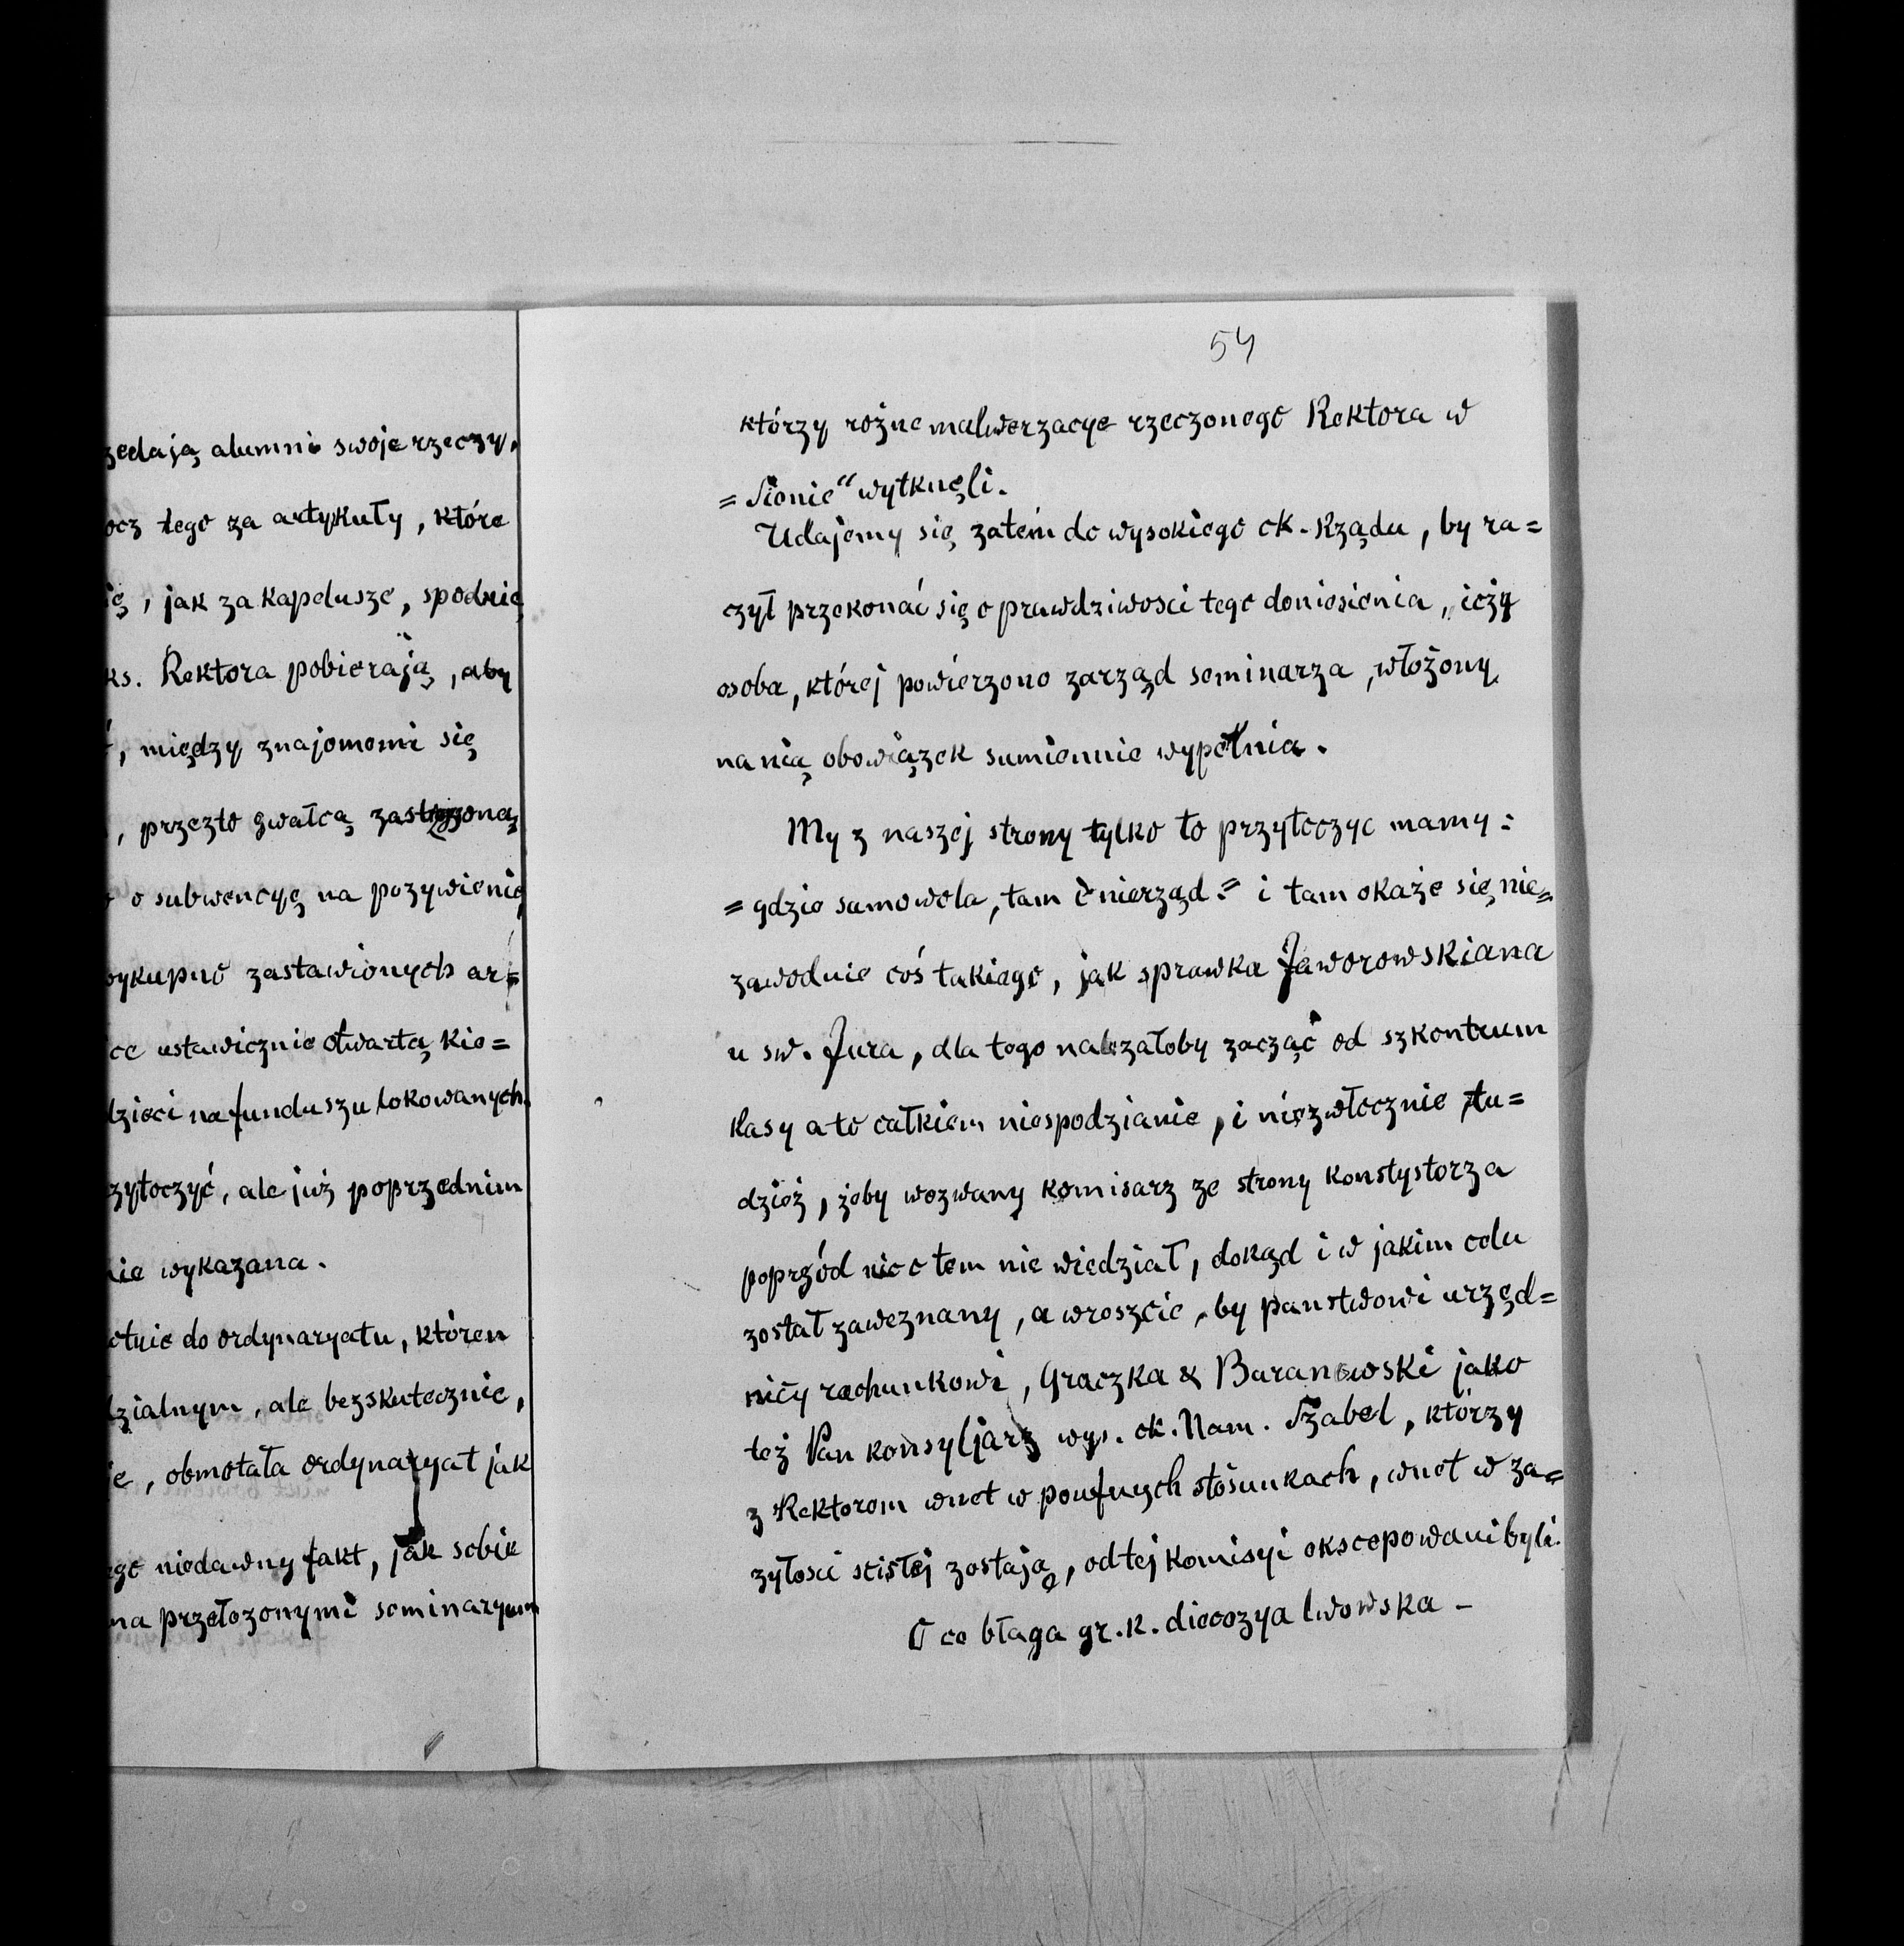 zedają alumni swoje rzeczy,
ocz tego za artykuły, które
ię, jak za kapelusze, spodnie
ks. Rektora pobierają, aby
, między znajomemi się
, przezto gwałcą
o subwencyę na pozywienie
wykupno zastawionych ar=
ce ustawicznie otwartą kie=
dzieci na funduszu lokowanych
zytoczyć, ale już poprzednim
nie wykazana.
otnie do ordynaryatu, któren
dzialnym, ale bezskutecznie,
je, obmotała ordynaryat jak
ego niedawny fakt, jak sobie
na przełozonymi seminaryum
54
którzy rożne malwerzacye rzeczonego Rektora w
=Sionie" wytknęli.
Udajemy się zatém do wysokiego ck. Rządu, by ra=
czył przekonać się o prawdziwosci tego doniesienia, iczy
osoba, której powierzono zarząd seminarza, włożony
na nią obowiązek sumiennie wypełnia.
My z naszej strony tylko to przytoczyc mamy:
=gdzie samowola, tam i nierząd.= i tam okaże się nie=
zawodnie coś takiego, jak sprawka Jaworowskiana
u sw. Jura, dla tego należałoby zacząć od szkontrum
kasy a to całkiem niespodzianie, i niezwłocznie, tu=
dzież, żeby wezwany komisarz ze strony konstystorza
poprzód nic o tem nie wiedział, dokąd i w jakim celu
został zawezwany, a wroszcie, by panstwowi urzęd=
nicy rachunkowi, Graczka & Baranowski jako
też Pan konsyljarz wys. ck. Nam. Szabel, którzy
z Rektorem wnet w poufnych stósunkach, wnet w za=
zyłosci scisłej zostają, od tej komisyi ekscepowani byli.
O co błaga gr. k. diecezya lwowska -